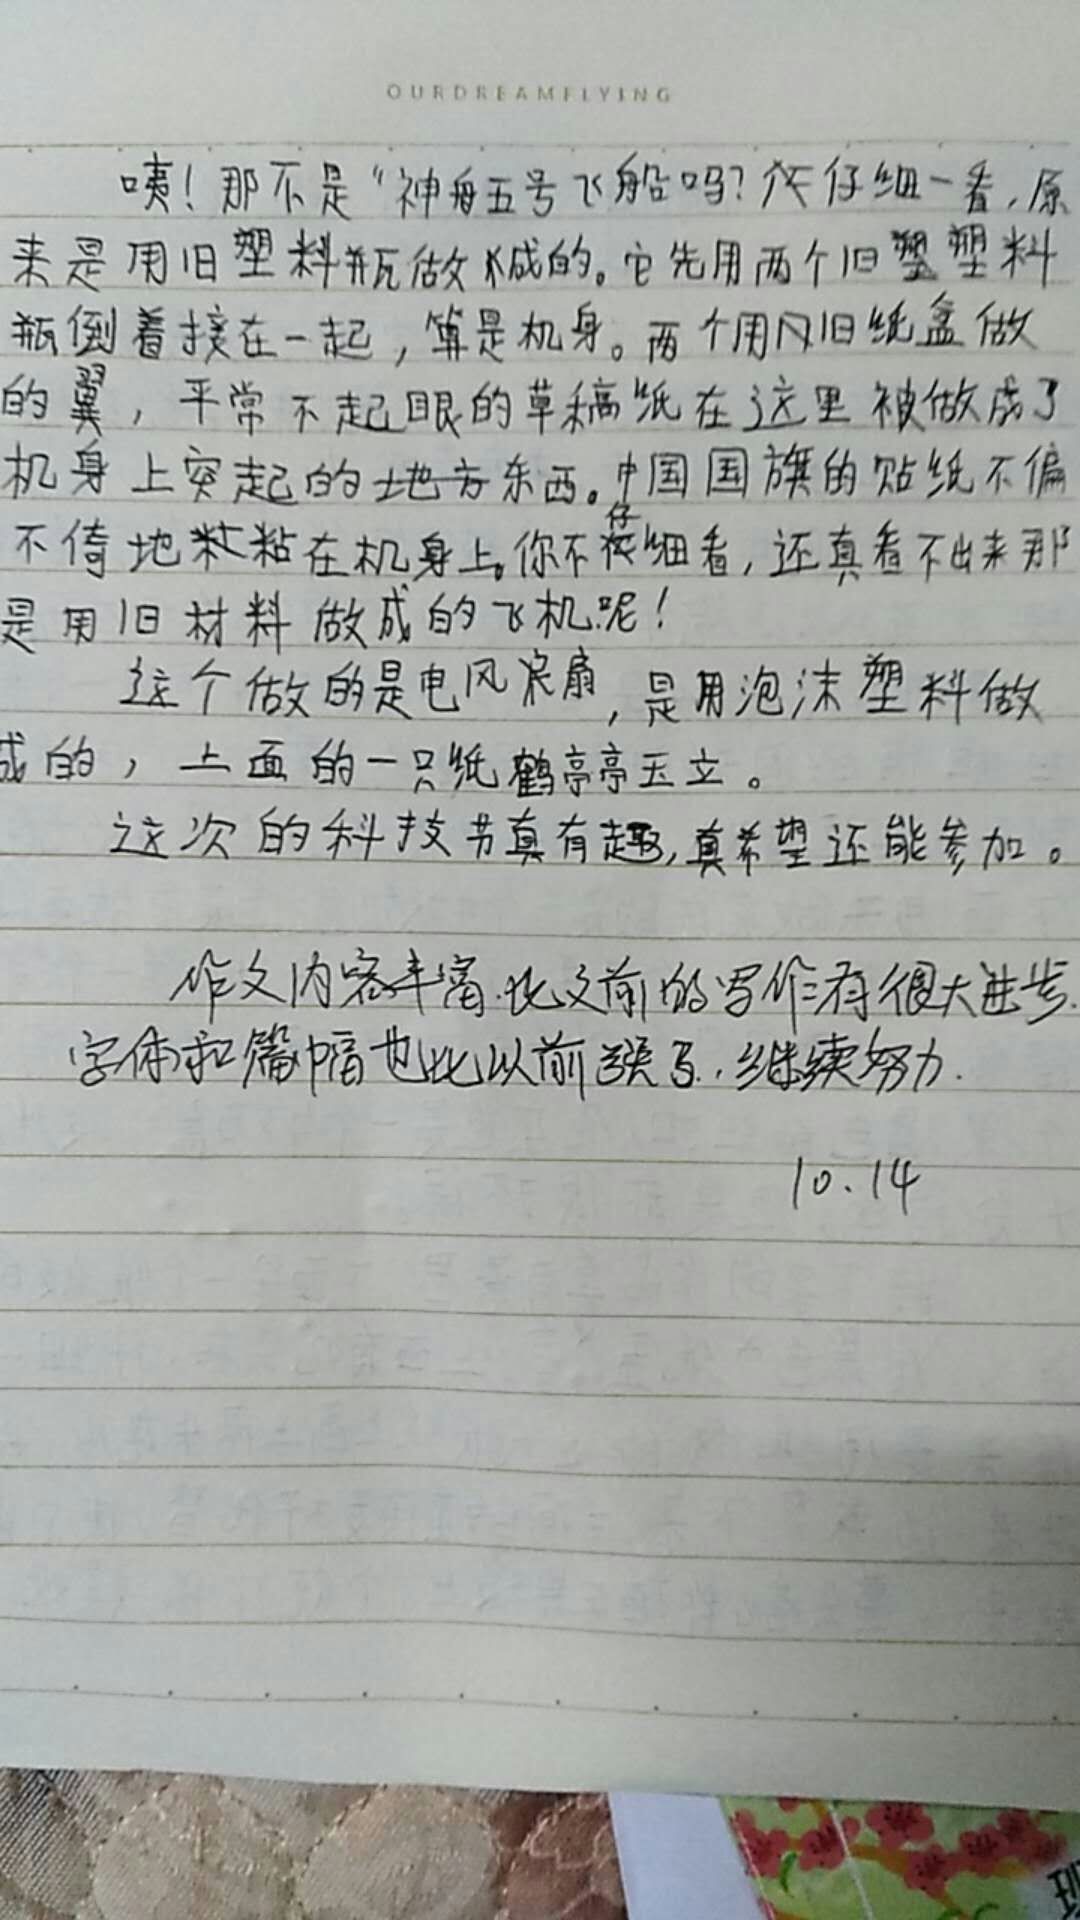 OURDREAMFLYING
咦！那不是“神舟五号飞船吗？仔细一看，原
来是用旧塑料瓶做成的。它先用两个旧塑料
瓶倒着接在一起，算是机身。两个用旧纸盒做
的翼，平常不起眼的草稿纸在这里被做成了
机身上突起的东西。中国国旗的贴纸不偏
不倚地粘在机身上。你不仔细看，还真看不出来那
是用旧材料做成的飞机呢！
这个做的是电风扇，是用泡沫塑料做
成的，上面的一只纸鹤亭亭玉立。
这次的科技节真有趣，真希望还能参加。
作文内容丰富.比之前的写作有很大进步.
字体和篇幅也比以前强了.，继续努力.
10.14